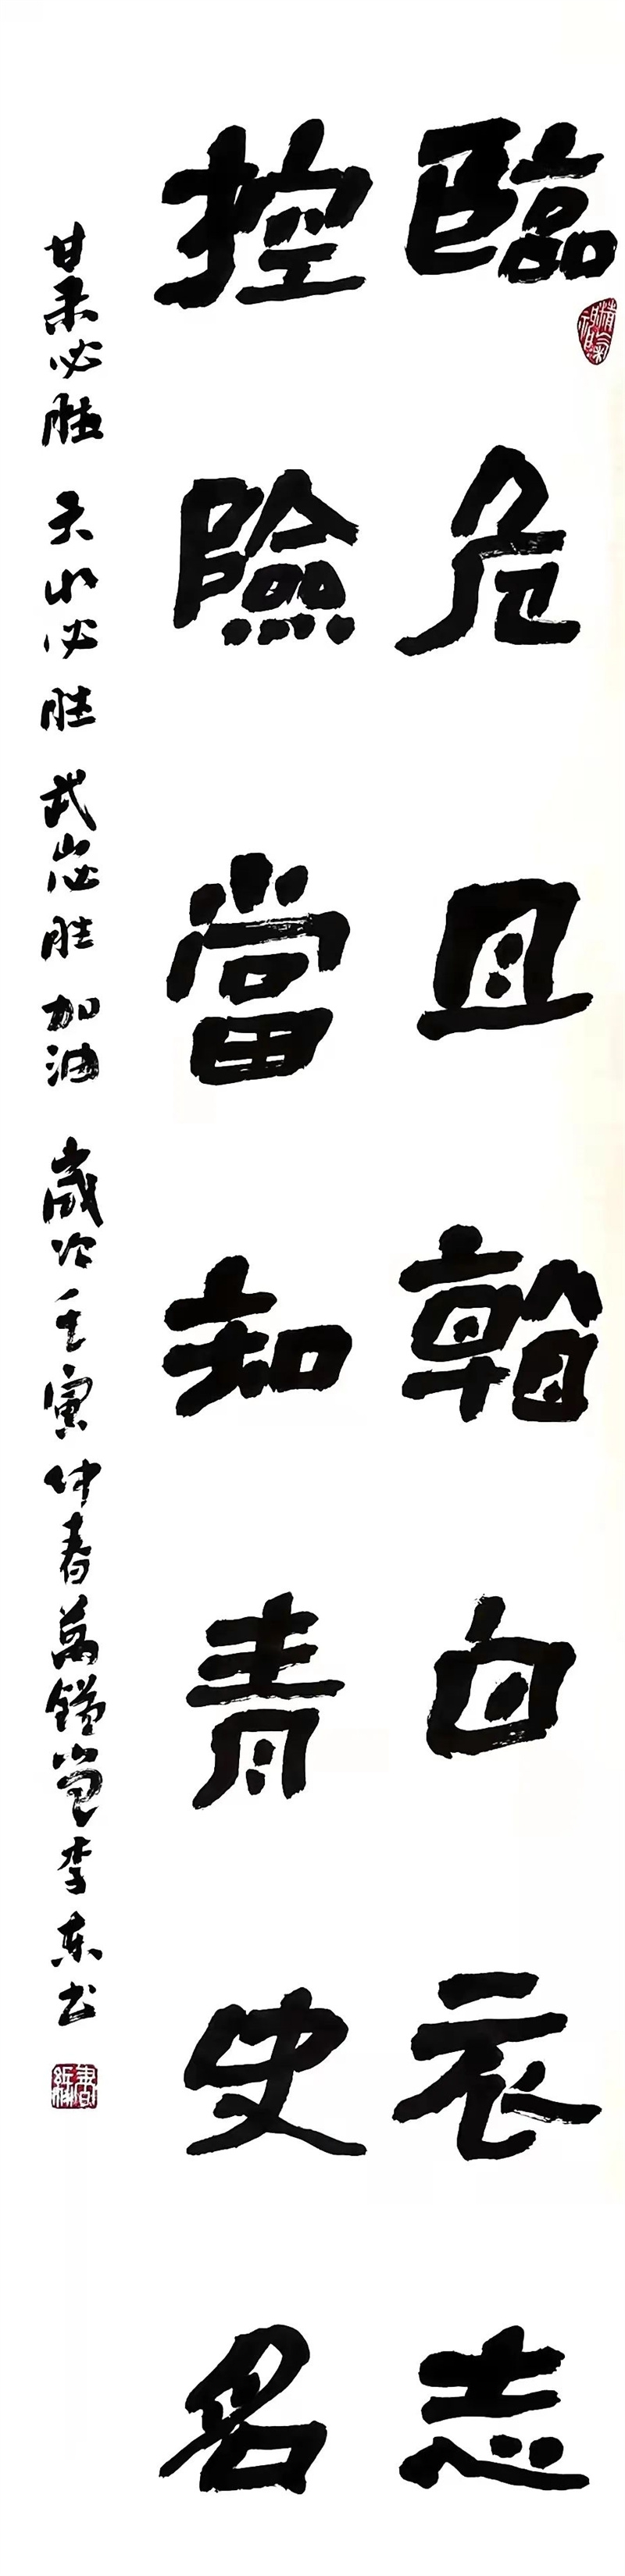 臨危且看白衣志
控險當知青史名
甘肃必胜 天水必胜 武山必胜 加油 歲次壬寅仲春萬鎰堂李东书